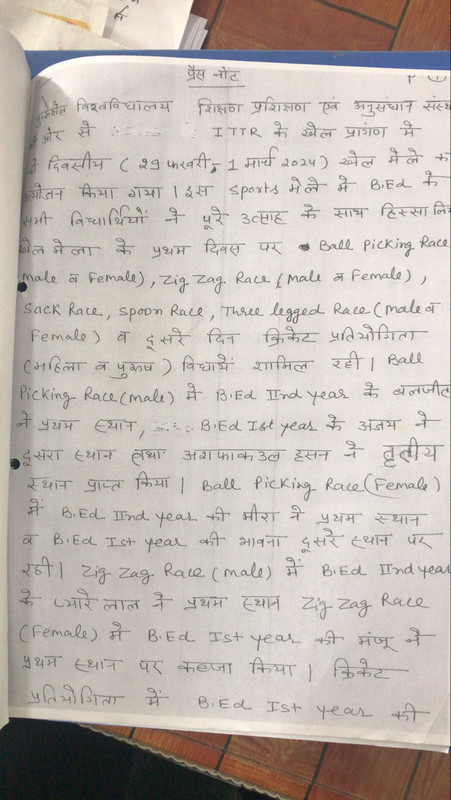 प्रैस नोट
विश्वविद्यालय शिक्षण प्रशिक्षण एवं अनुसंधान संस्थ
ओर से IITR के खेल प्रांगण में
दिवसीय ( 29 फरवरी, - 1 मार्च 2024) खेल मेले क
योजन किया गया। इस Sports मेले में B.Ed के
सभी विद्यार्थियों ने पूरे उत्साह के साथ हिस्सा लिय
खेल मेला के प्रथम दिवस पर Ball Picking Race
Male व Female), Zig Zag Race (Male व Female),
Sack Race, Spoon Race, Three legged Race (Male व
Female) व दूसरे दिन क्रिकेट प्रतियोगिता
(महिला व पुरूष) विधायें शामिल रही। Ball
Picking Race (Male) में B.Ed IInd year के बलजीत
ने प्रथम स्थान, B.Ed Ist year के अजय ने
दूसरा स्थान तथा अशफाक उल हसन ने तृतीय
स्थान प्राप्त किया। Ball Picking Race (Female)
में B.Ed IInd year की मीरा ने प्रथम स्थान
व B.Ed Ist year की भावना दूसरे स्थान पर
रही। Zig Zag Race (Male) में B.Ed IInd year
के प्यारे लाल ने प्रथम स्थान Zig Zag Race
(Female) में B.Ed Ist year की मंजू ने
प्रथम स्थान पर कब्जा किया। क्रिकेट
प्रतियोगिता में B.Ed Ist year की